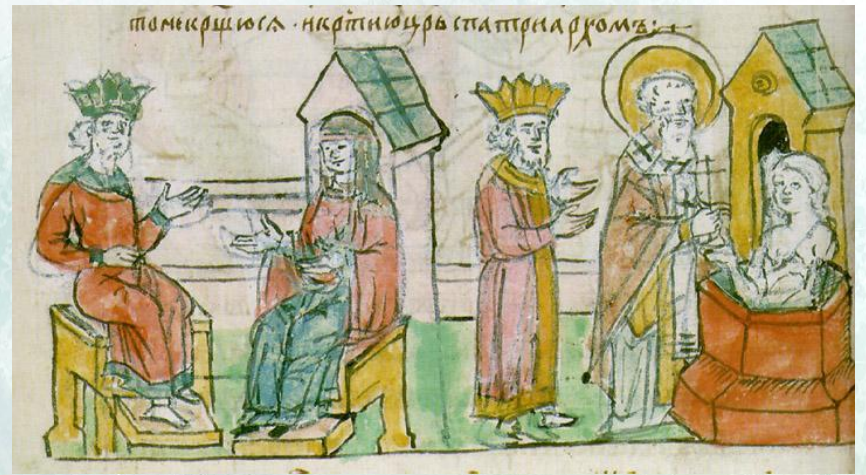 то некрщюся · и крти ю црь с патриархомъ: